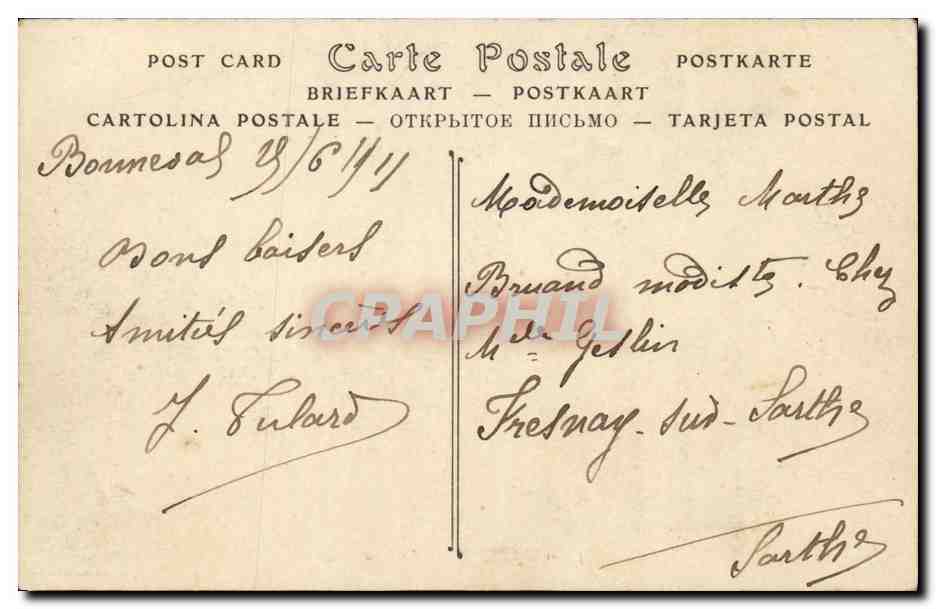 POST CARD Carte Postale POSTKARTE
BRIEFKAART — POSTKAART
CARTOLINA POSTALE — ОТКРЫТОЕ ПИСЬМО — TARJETA POSTAL
Bonneval 25/6 1911
Bons baisers
Amitiés sincères
J. Tulard
Mademoiselle Marthe
Bruand modiste. Chez
Mde Geslin
Fresnay-sur-Sarthe
Sarthe
CRAPHIL